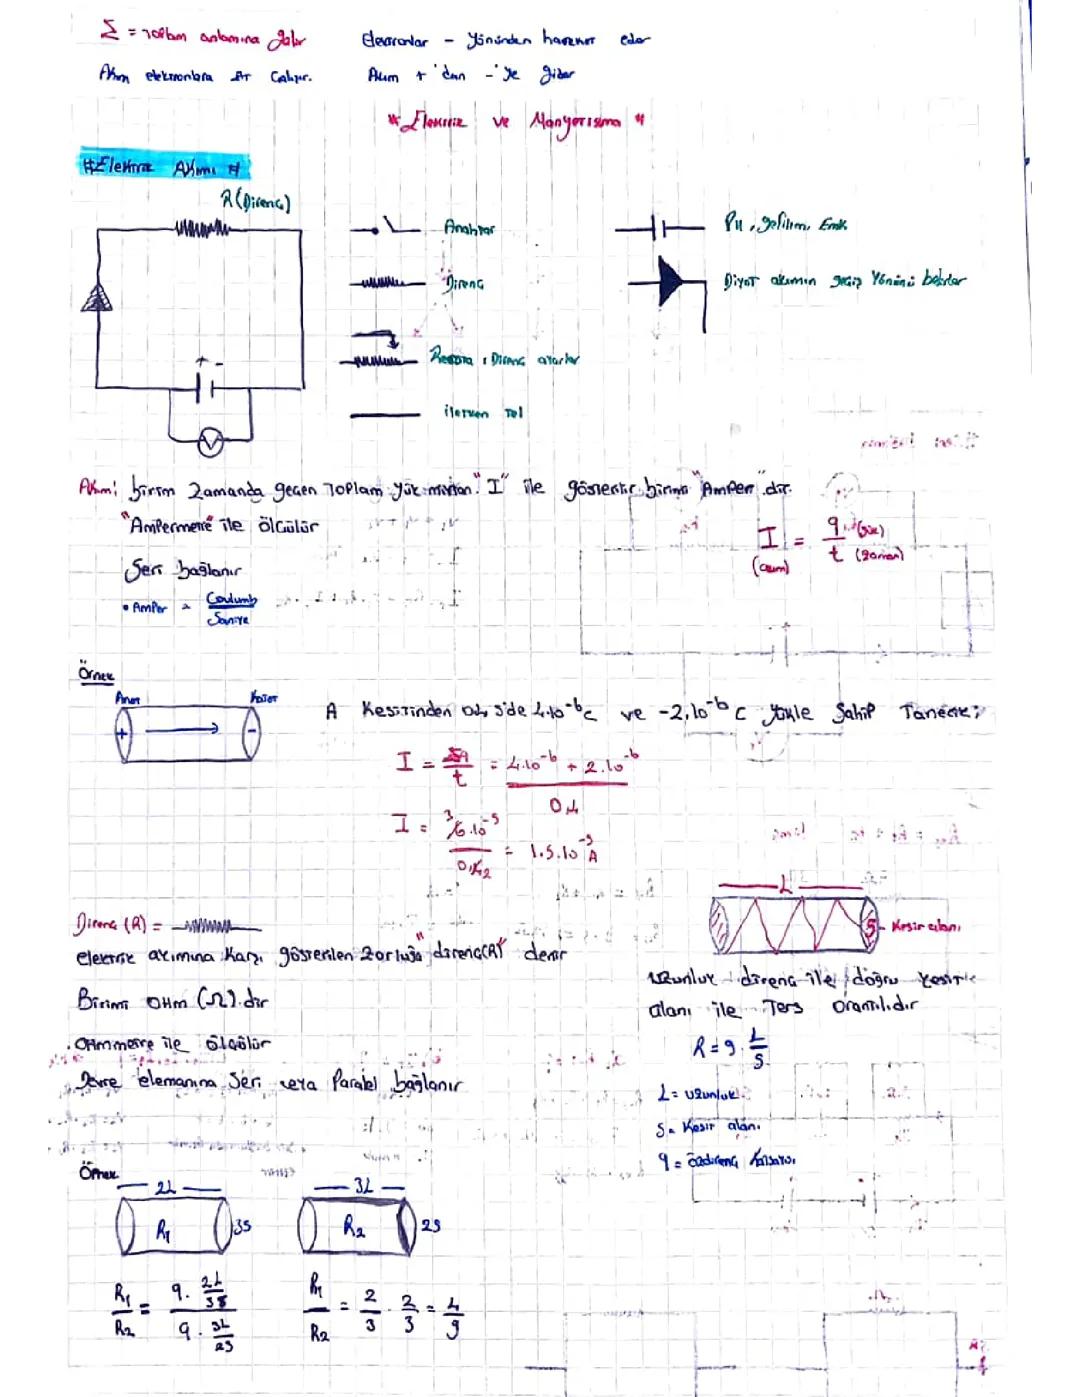 Σ = Toplam anlamına gelir
Elektronlar - yönünden hareket eder
Akım elektronlara zıt çalışır.
Akım + 'dan -'ye gider
" Elektrik ve Manyetizma "
# Elektrik Akımı #
R (Direnç)
Anahtar
Pil, gerilim, Emk
Direnç
Diyot akımın geçiş yönünü belirler
Reosta : Direnç ayarlar
+ -
iletken Tel
V
Akım: birim zamanda geçen Toplam yük miktarı "I" ile gösterilir birimi "Amper" dir.
"Ampermetre" ile ölçülür
I = q (yük) / t (zaman)
(akım)
Seri bağlanır
• Amper = Coulumb / Saniye
Örnek
Anot Katot
+ -
A Kesitinden 0,4 s'de 4.10⁻⁶ C ve -2.10⁻⁶ C yükle Sahip Tanecik;
I = Σq / t = 4.10⁻⁶ + 2.10⁻⁶ / 0,4
I = 3 6.10⁻⁵ / 0,4 2 = 1.5.10⁻⁵ A
L
S Kesit alanı
Direnç (R) =
elektrik akımına karşı gösterilen zorluğa "direnç(R)" denir
Birimi OHm (Ω) dir
. OHmmetre ile ölçülür
Devre elemanına Seri veya Paralel bağlanır
uzunluk direnç ile doğru kesit
alanı ile Ters Orantılıdır
R = q . L / S
L = uzunluk
S = Kesit alanı
q = özdirenç katsayısı
Örnek
2L
R₁
3S
3L
R₂
2S
R₁ / R₂ = q . 2L/3S / q . 3L/2S
R₁ / R₂ = 2/3 . 2/3 = 4/9